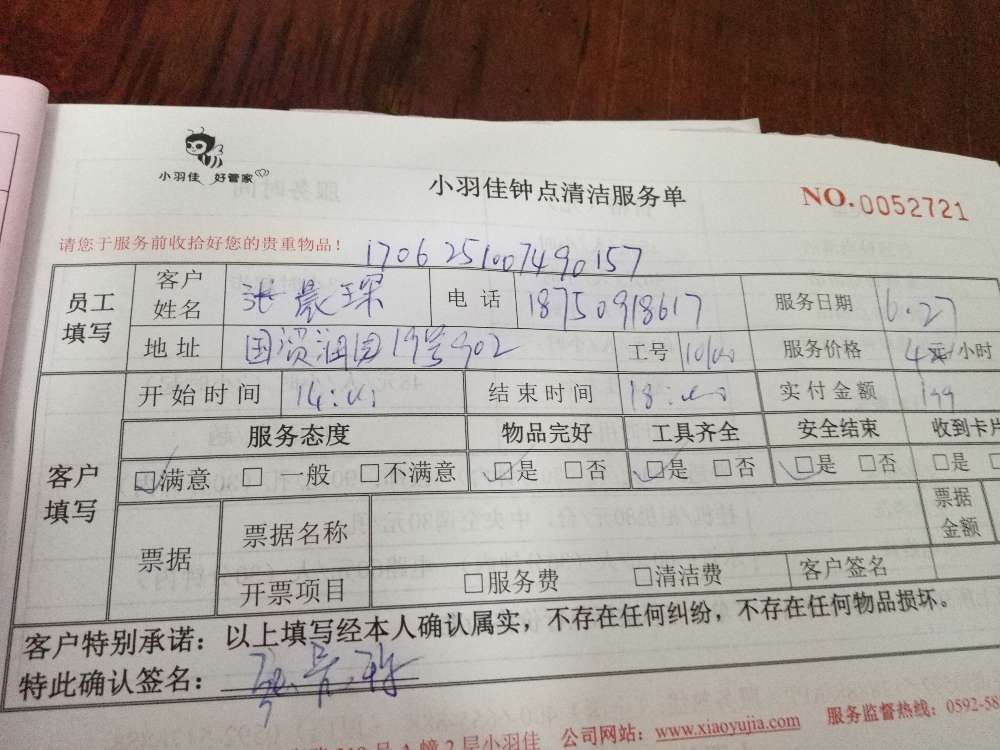 小羽佳 好管家
小羽佳钟点清洁服务单
NO.0052721
请您于服务前收拾好您的贵重物品！
1706251007490157
员工填写 客户姓名 张晨琛 电话 18750918617 服务日期 6.27
地址 国贸润园19号902 工号 服务价格 元/小时
客户填写 开始时间 14:00 结束时间 18:00 实付金额 199
服务态度 物品完好 工具齐全 安全结束 收到卡片
☑满意 □一般 □不满意 ☑是 □否 ☑是 □否 ☑是 □否 □是
票据 票据名称 票据金额
开票项目 □服务费 □清洁费 客户签名
客户特别承诺：以上填写经本人确认属实，不存在任何纠纷，不存在任何物品损坏。
特此确认签名：
号A幢2层小羽佳 公司网站：www.xiaoyujia.com 服务监督热线：0592-58